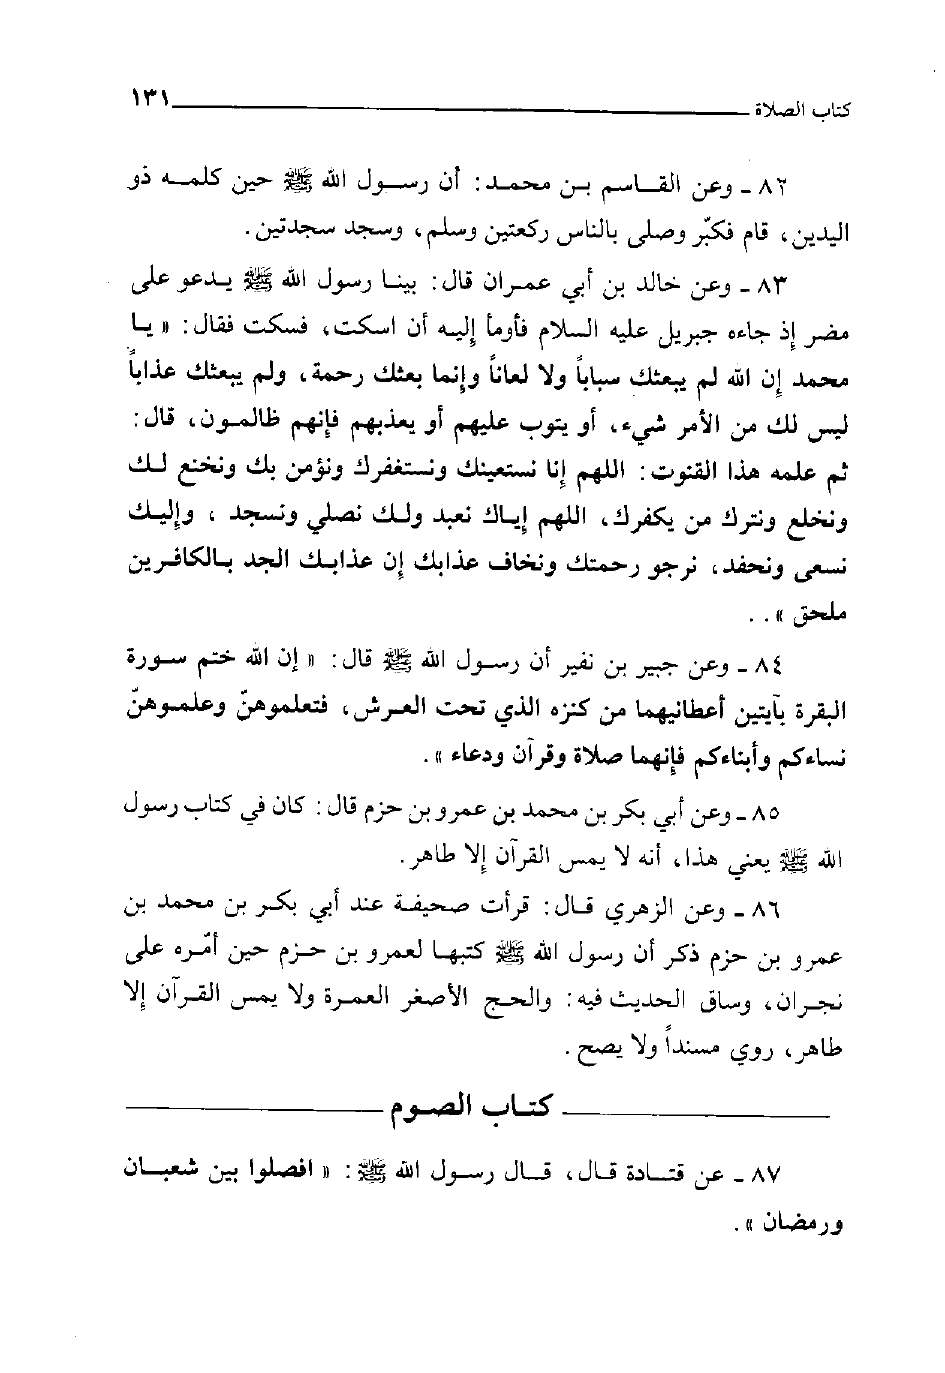 كتاب الصلاة ١٣١
٨٢ - وعن القاسم بن محمد: أن رسول الله ﷺ حين كلمه ذو
اليدين، قام فكبّر وصلى بالناس ركعتين وسلم، وسجد سجدتين.
٨٣ - وعن خالد بن أبي عمران قال: بينا رسول الله ﷺ يدعو على
مضر إذ جاءه جبريل عليه السلام فأومأ إليه أن اسكت، فسكت فقال: « يا
محمد إن الله لم يبعثك سباباً ولا لعاناً وإنما بعثك رحمة، ولم يبعثك عذاباً
ليس لك من الأمر شيء، أو يتوب عليهم أو يعذبهم فإنهم ظالمون، قال:
ثم علمه هذا القنوت: اللهم إنا نستعينك ونستغفرك ونؤمن بك ونخنع لك
ونخلع ونترك من يكفرك، اللهم إياك نعبد ولك نصلي ونسجد ، وإليك
نسعى ونحفد، نرجو رحمتك ونخاف عذابك إن عذابك الجد بالكافرين
ملحق » . .
٨٤ - وعن جبير بن نفير أن رسول الله ﷺ قال: « إن الله ختم سورة
البقرة بآيتين أعطانيهما من كنزه الذي تحت العرش، فتعلموهنّ وعلموهنّ
نساءكم وأبناءكم فإنهما صلاة وقرآن ودعاء ».
٨٥ - وعن أبي بكر بن محمد بن عمرو بن حزم قال: كان في كتاب رسول
الله ﷺ يعني هذا، أنه لا يمس القرآن إلا طاهر.
٨٦ - وعن الزهري قال: قرأت صحيفة عند أبي بكر بن محمد بن
عمرو بن حزم ذكر أن رسول الله ﷺ كتبها لعمرو بن حزم حين أمّره على
نجران، وساق الحديث فيه: والحج الأصغر العمرة ولا يمس القرآن إلا
طاهر، روي مسنداً ولا يصح.
كتاب الصوم
٨٧ - عن قتادة قال، قال رسول الله ﷺ: « افصلوا بين شعبان
ورمضان ».